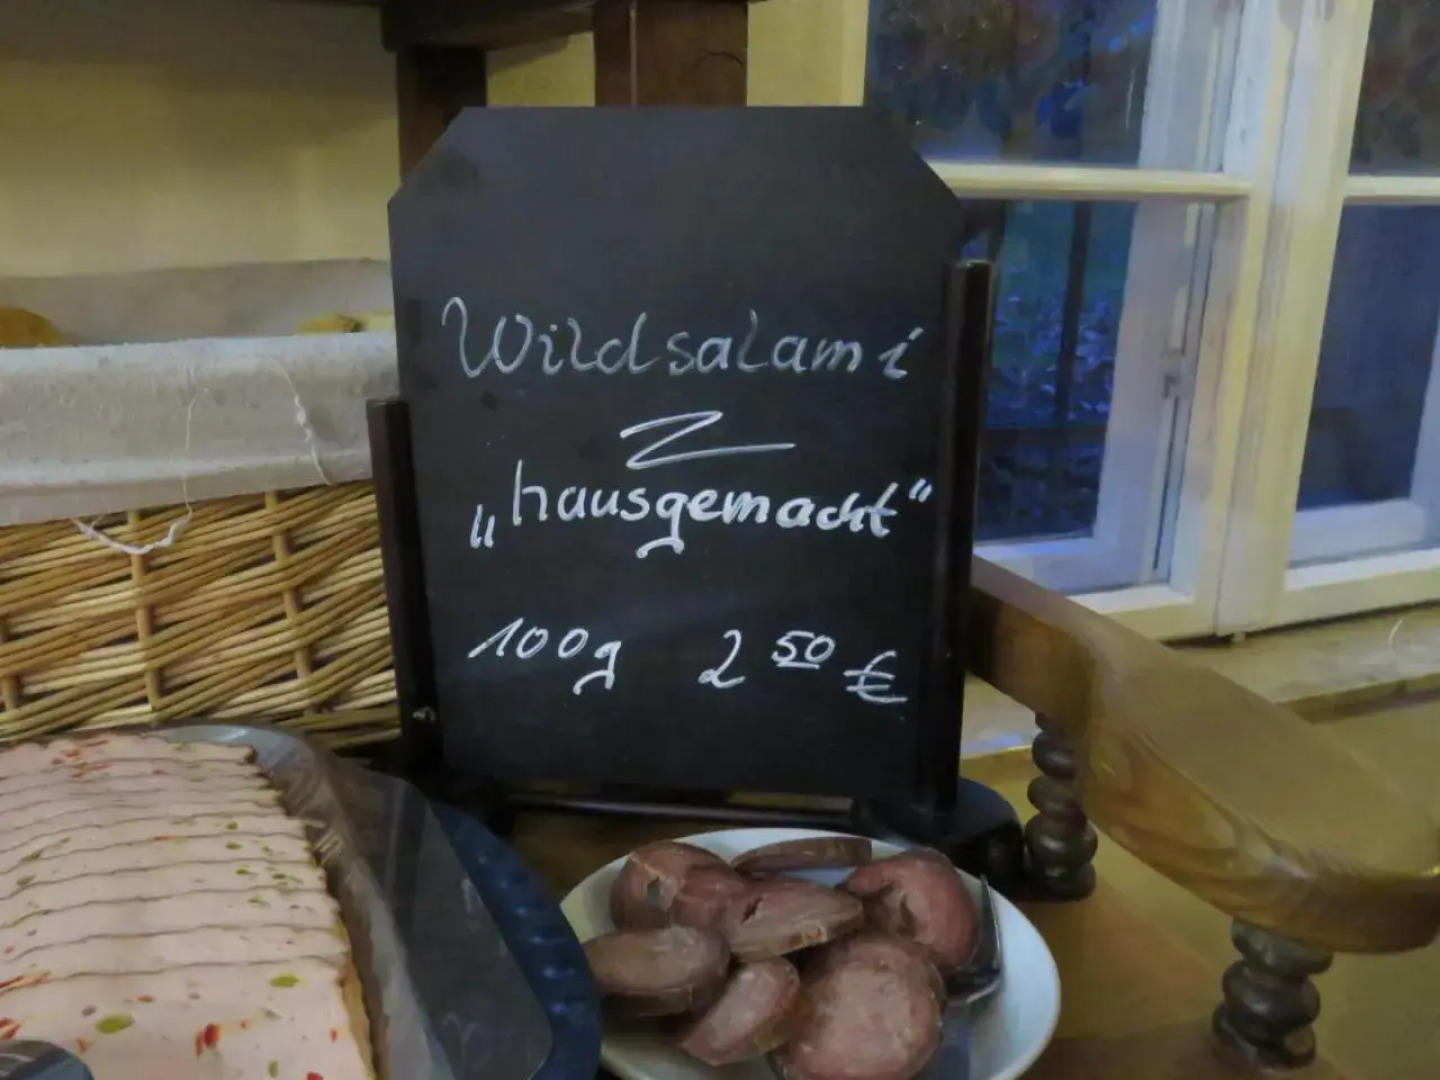 Wildsalami
„hausgemacht“
100g 2 50 €